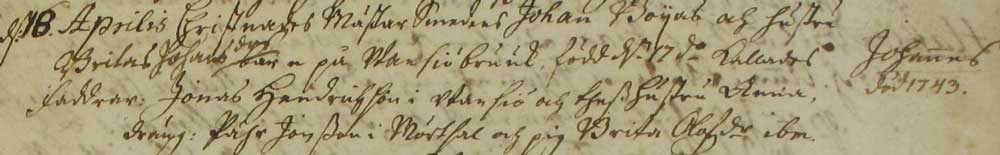 d. 18. Aprilis Christnades Mästar Smedens Johan Böyas och hustru
Britas Johansdrs barn på Wansiö bruuk, född d. 17 do Kallades Johannes
Faddrar: Jonas Hendrichson i Wansiö och thes hustru Anna, död 1743.
dräng: Pähr Jonsson i Mörthal och pig Brita Olofdr ibm.